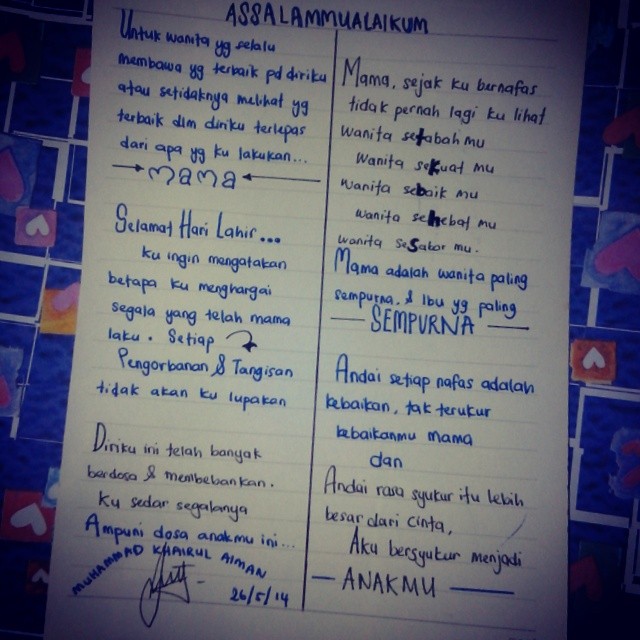 ASSALAMMUALAIKUM
Untuk wanita yg selalu
membawa yg terbaik pd diriku
atau setidaknya melihat yg
terbaik dlm diriku terlepas
dari apa yg ku lakukan...
mama
Selamat Hari Lahir...
ku ingin mengatakan
betapa ku menghargai
segala yang telah mama
laku. Setiap
Pengorbanan & Tangisan
tidak akan ku lupakan
Diriku ini telah banyak
berdosa & membebankan.
ku sedar segalanya
Ampuni dosa anakmu ini...
MUHAMMAD KHAIRUL AIMAN
26/5/14
Mama, sejak ku bernafas
tidak pernah lagi ku lihat
wanita setabah mu
wanita sekuat mu
wanita sebaik mu
wanita sehebat mu
wanita sesabar mu.
Mama adalah wanita paling
sempurna, & Ibu yg paling
SEMPURNA
Andai setiap nafas adalah
kebaikan, tak terukur
kebaikanmu mama
dan
Andai rasa syukur itu lebih
besar dari cinta,
Aku bersyukur menjadi
ANAKMU